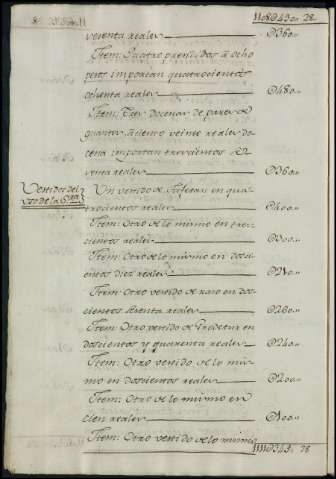 sesenta reales — @360..
Item: Quatro prendidos à ocho
pesos importan quatrocientos
ochenta reales — @480..
Item: Tres docenas de pares de
guantes, à ciento veinte reales do-
cena importan trescientos se-
senta reales — @360..
Vestidos del
uso de la S.ra
Un vestido de tafetan en qua-
trocientos reales — @400..
Item: Otro de lo mismo en tres-
cientos reales — @300..
Item: Otro de lo mismo en dosci-
entos diez reales — @210..
Item: Otro vestido de raso en dos-
cientos sesenta reales — @260..
Item: Otro vestido de en
doscientos y quarenta reales — @240..
Item: Otro vestido de lo mis-
mo en doscientos reales — @200..
Item: Otro de lo mismo en
cien reales — @100..
Item: Otro vestido de lo mismo